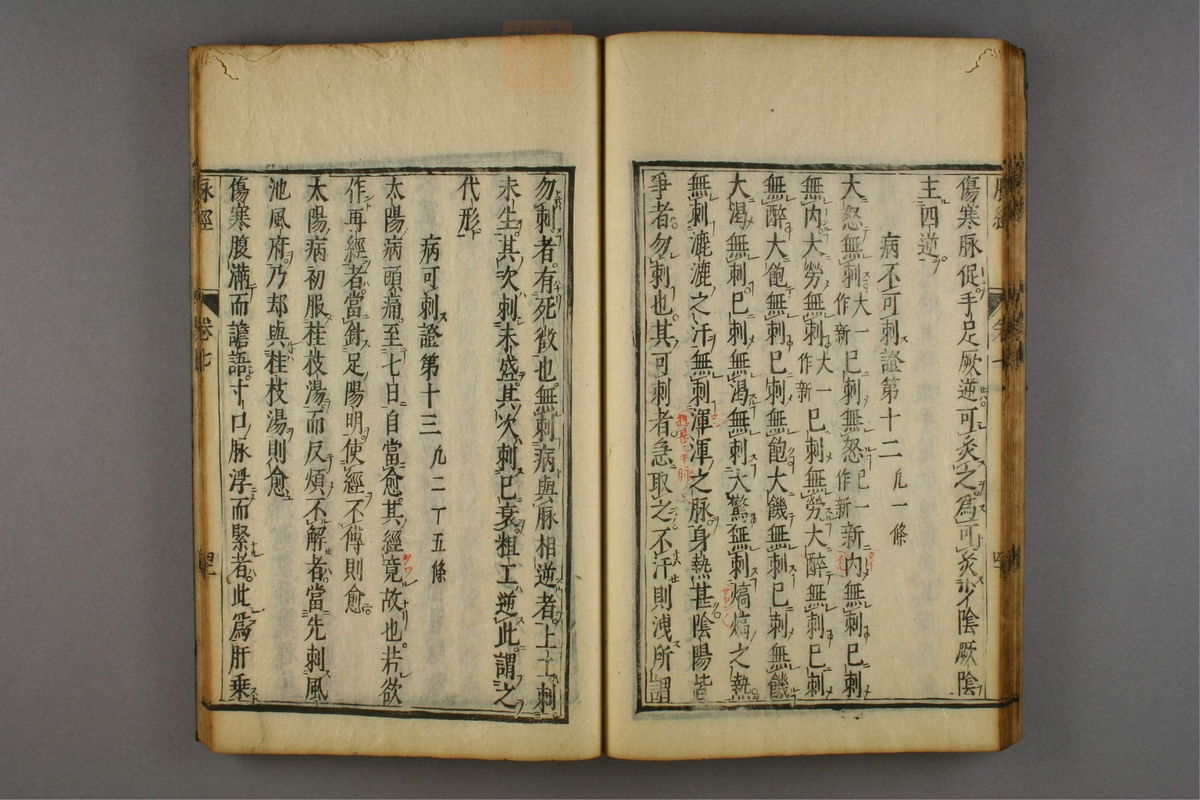 傷寒脉促手足厥逆可灸之爲可灸少陰厥陰
主四逆
病不可刺證第十二凡一條
大怒無刺大一作新已刺無怒已一作新新內無刺已刺
無內大勞無刺大一作新已刺無勞大醉無刺已刺
無醉大飽無刺已刺無飽大饑無刺已刺無饑
大渴無刺已刺無渴無刺大驚無刺熇熇之熱
無刺漉漉之汗無刺渾渾之脉身熱甚陰陽皆
爭者勿刺也其可刺者急取之不汗則洩所謂
勿刺者有死徵也無刺病與脉相逆者上工刺
未生其次刺未盛其次刺已衰粗工逆此謂之
代形
病可刺證第十三凡二十五條
太陽病頭痛至七日自當愈其經竟故也若欲
作再經者當針足陽明使經不傳則愈
太陽病初服桂枝湯而反煩不解者當先刺風
池風府乃却與桂枝湯則愈
傷寒腹滿而譫語寸口脉浮而緊者此爲肝乗
脉經
卷七